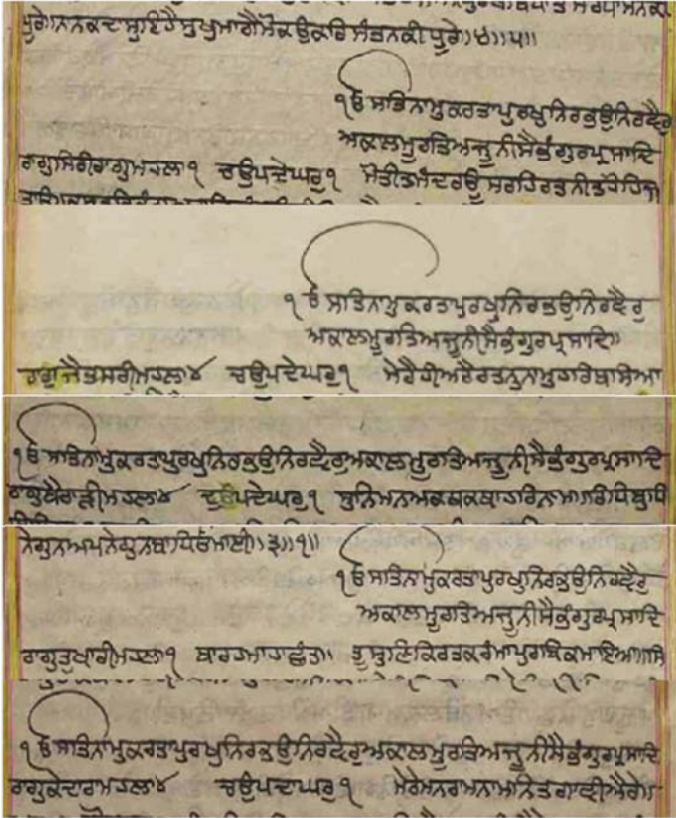 ਪੂਰੇ॥ਨਾਨਕਦਾਸੁਇਹੈਸੁਖੁਮਾਗੈਮੋਕਉਕਰਿਸੰਤਨਕੀਧੂਰੇ॥੪॥੫॥
੧ਓਸਤਿਨਾਮੁਕਰਤਾਪੁਰਖੁਨਿਰਭਉਨਿਰਵੈਰੁ
ਅਕਾਲਮੂਰਤਿਅਜੂਨੀਸੈਭੰਗੁਰਪ੍ਰਸਾਦਿ
ਰਾਗੁਸਿਰੀਰਾਗੁਮਹਲਾ੧ ਚਉਪਦੇਘਰੁ੧ ਮੋਤੀਤਮੰਦਰਊਸਰਹਿਰਤਨੀਤਹੋਹਿਜ
੧ਓਸਤਿਨਾਮੁਕਰਤਾਪੁਰਖੁਨਿਰਭਉਨਿਰਵੈਰੁ
ਅਕਾਲਮੂਰਤਿਅਜੂਨੀਸੈਭੰਗੁਰਪ੍ਰਸਾਦਿ॥
ਰਾਗੁਜੈਤਸਰੀਮਹਲਾ੪ ਚਉਪਦੇਘਰੁ੧ ਮੇਰੈਹੀਅਰੈਰਤਨੁਨਾਮੁਹਰਿਬਸਿਆ
੧ਓਸਤਿਨਾਮੁਕਰਤਾਪੁਰਖੁਨਿਰਭਉਨਿਰਵੈਰੁਅਕਾਲਮੂਰਤਿਅਜੂਨੀਸੈਭੰਗੁਰਪ੍ਰਸਾਦਿ
ਰਾਗੁਬੈਰਾੜੀਮਹਲਾ੪ ਦੁਉਪਦੇਘਰੁ੧ ਸੁਨਿਮਨਅਕਥਕਥਾਹਰਿਨਾਮ
੧ਓਸਤਿਨਾਮੁਕਰਤਾਪੁਰਖੁਨਿਰਭਉਨਿਰਵੈਰੁ
ਅਕਾਲਮੂਰਤਿਅਜੂਨੀਸੈਭੰਗੁਰਪ੍ਰਸਾਦਿ
ਰਾਗੁਤੁਖਾਰੀਮਹਲਾ੧ ਬਾਰਹਮਾਹਾਛੰਤ॥ ਤੂਸੁਣਿਕਿਰਤਕਰੰਮਾਪੁਰਬਿਕਮਾਇਆ
੧ਓਸਤਿਨਾਮੁਕਰਤਾਪੁਰਖੁਨਿਰਭਉਨਿਰਵੈਰੁਅਕਾਲਮੂਰਤਿਅਜੂਨੀਸੈਭੰਗੁਰਪ੍ਰਸਾਦਿ
ਰਾਗੁਕੇਦਾਰਾਮਹਲਾ੪ ਚਉਪਦਾਘਰੁ੧ ਮੇਰੇਮਨਰਾਮਨਾਮਨਿਤਗਾਵੀਐਰੇ॥